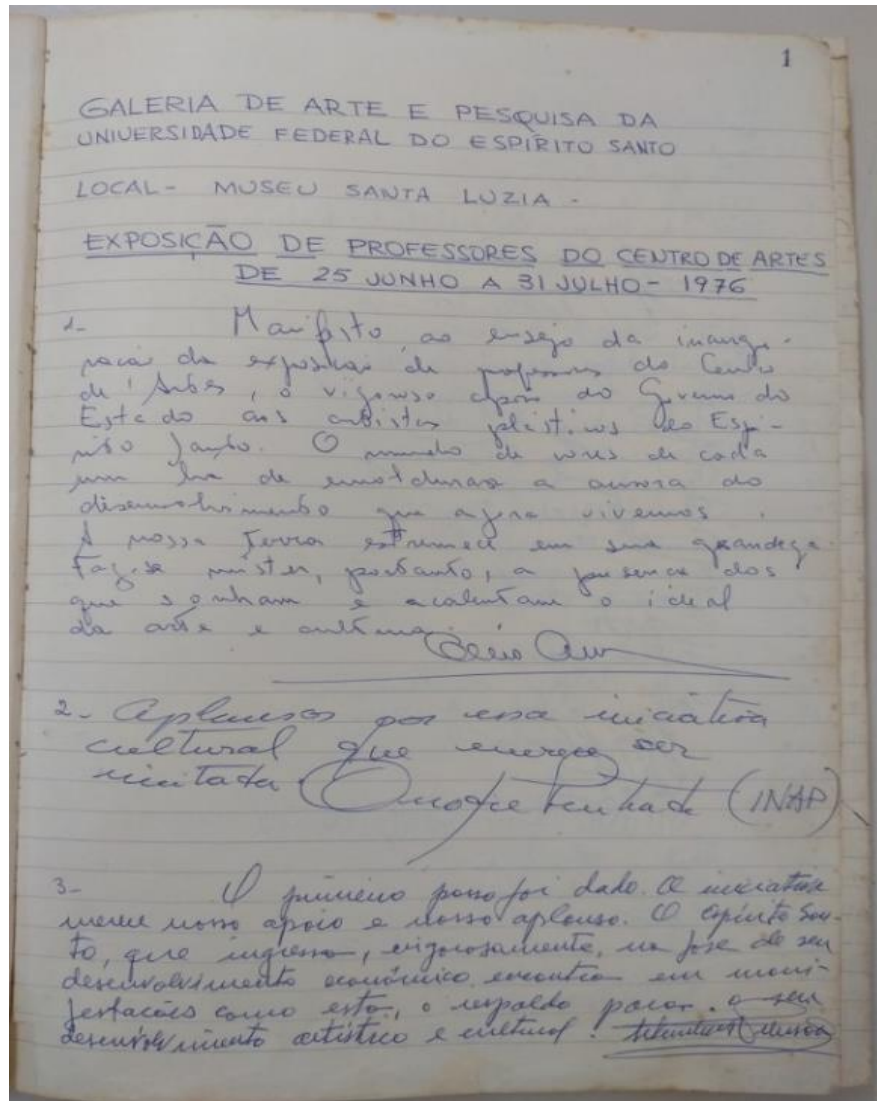 1
GALERIA DE ARTE E PESQUISA DA
UNIVERSIDADE FEDERAL DO ESPÍRITO SANTO
LOCAL - MUSEU SANTA LUZIA -
EXPOSIÇÃO DE PROFESSORES DO CENTRO DE ARTES
DE 25 JUNHO A 31 JULHO - 1976
1- Manifesto ao ensejo da inaugu-
ração da exposição de professores do Centro
de Artes, o vigoroso apoio do Governo do
Estado aos artistas plásticos do Espí-
rito Santo. O mundo de cores de cada
um há de emoldurar a aurora do
desenvolvimento que agora vivemos.
A nossa Terra estremece em sua grandeza.
Faz-se mister, portanto, a presença dos
que sonham e acalentam o ideal
da arte e cultura.
2- Aplausos por essa iniciativa
cultural que merece ser
imitada. (INAP)
3- O primeiro passo foi dado. A iniciativa
merece nosso apoio e nosso aplauso. O Espírito San-
to, que ingressa, vigorosamente, na fase de seu
desenvolvimento econômico encontra em mani-
festações como esta, o respaldo para o seu
desenvolvimento artístico e cultural.